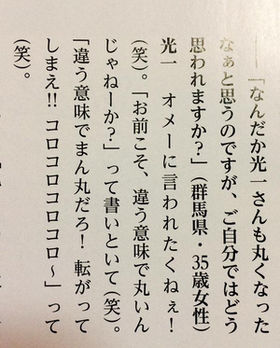 ──「なんだか光一さんも丸くなった
なぁと思うのですが、ご自分ではどう
思われますか?」(群馬県・35歳女性)
光一 オメーに言われたくねぇ!
(笑)。「お前こそ、違う意味で丸いん
じゃねーか?」って書いといて(笑)。
「違う意味でまん丸だろ! 転がって
しまえ!! コロコロコロコロ〜」って
(笑)。